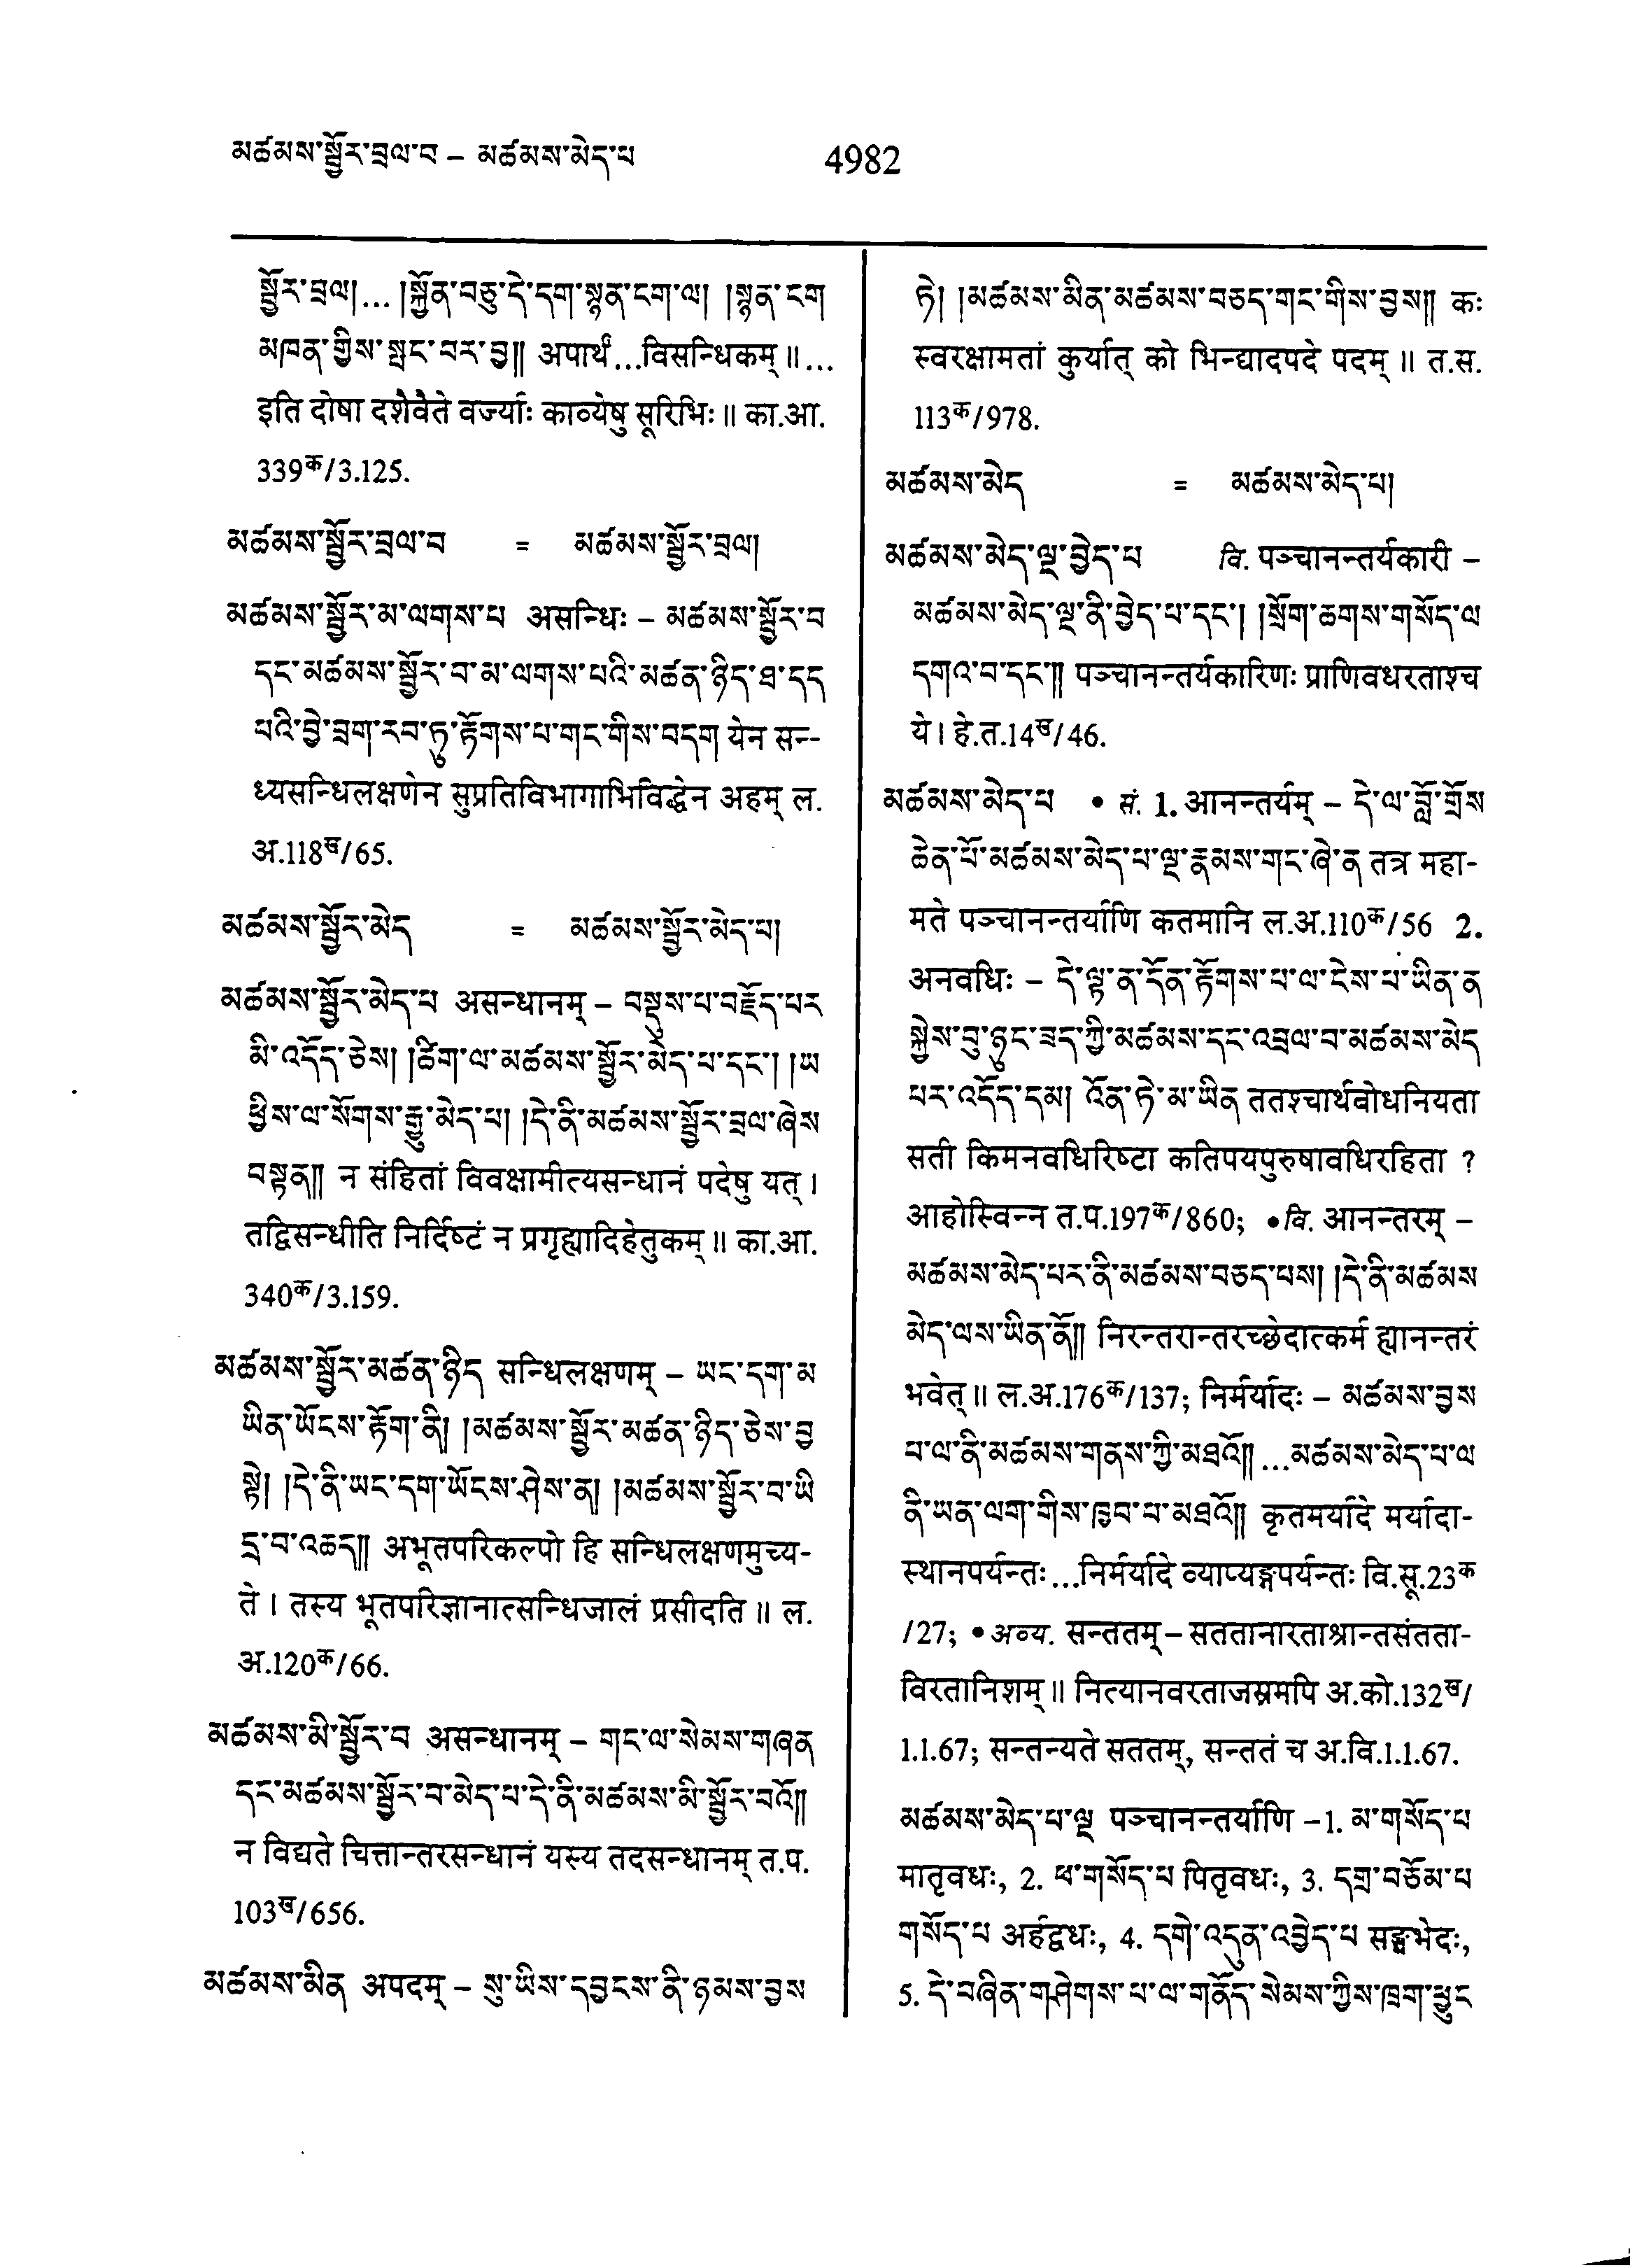 མཚམས་སྦྱོར་བྲལ་བ – མཚམས་མེད་པ
4982
སྦྱོར་བྲལ།... །སྐྱོན་བཅུ་དེ་དག་སྙན་ངག་ལ། །སྙན་ངག
མཁན་གྱིས་སྤང་བར་བྱ།། अपार्थं...विसन्धिकम् ॥...
इति दोषा दशैवैते वर्ज्याः काव्येषु सूरिभिः ॥ का.आ.
339क/3.125.
མཚམས་སྦྱོར་བྲལ་བ = མཚམས་སྦྱོར་བྲལ།
མཚམས་སྦྱོར་མ་ལགས་པ असन्धिः – མཚམས་སྦྱོར་བ
དང་མཚམས་སྦྱོར་བ་མ་ལགས་པའི་མཚན་ཉིད་ཐ་དད
པའི་བྱེ་བྲག་རབ་ཏུ་རྟོགས་པ་གང་གིས་བདག येन सन्-
ध्यसन्धिलक्षणेन सुप्रतिविभागाभिविद्धेन अहम् ल.
अ.118ख/65.
མཚམས་སྦྱོར་མེད = མཚམས་སྦྱོར་མེད་པ།
མཚམས་སྦྱོར་མེད་པ असन्धानम् – བསྡུས་པ་བརྗོད་པར
མི་འདོད་ཅེས། །ཚིག་ལ་མཚམས་སྦྱོར་མེད་པ་དང་། །ཡ
ཕྱིས་ལ་སོགས་རྒྱུ་མེད་པ། །དེ་ནི་མཚམས་སྦྱོར་བྲལ་ཞེས
བསྟན།། न संहितां विवक्षामीत्यसन्धानं पदेषु यत् ।
तद्विसन्धीति निर्दिष्टं न प्रगृह्यादिहेतुकम् ॥ का.आ.
340क/3.159.
མཚམས་སྦྱོར་མཚན་ཉིད सन्धिलक्षणम् – ཡང་དག་མ
ཡིན་ཡོངས་རྟོག་ནི། །མཚམས་སྦྱོར་མཚན་ཉིད་ཅེས་བྱ
སྟེ། །དེ་ནི་ཡང་དག་ཡོངས་ཤེས་ན། །མཚམས་སྦྱོར་བ་ཡི
དྲ་བ་འཆད།། अभूतपरिकल्पो हि सन्धिलक्षणमुच्य-
ते । तस्य भूतपरिज्ञानात्सन्धिजालं प्रसीदति ॥ ल.
अ.120क/66.
མཚམས་མི་སྦྱོར་བ असन्धानम् – གང་ལ་སེམས་གཞན
དང་མཚམས་སྦྱོར་བ་མེད་པ་དེ་ནི་མཚམས་མི་སྦྱོར་བའོ།།
न विद्यते चित्तान्तरसन्धानं यस्य तदसन्धानम् त.प.
103ख/656.
མཚམས་མིན अपदम् – སུ་ཡིས་དབྱངས་ནི་ཉམས་བྱས
ཏེ། །མཚམས་མིན་མཚམས་བཅད་གང་གིས་བྱས།། कः
स्वरक्षामतां कुर्यात् को भिन्द्यादपदे पदम् ॥ त.स.
113क/978.
མཚམས་མེད = མཚམས་མེད་པ།
མཚམས་མེད་ལྔ་བྱེད་པ वि. पञ्चानन्तर्यकारी –
མཚམས་མེད་ལྔ་ནི་བྱེད་པ་དང་། །སྲོག་ཆགས་གསོད་ལ
དགའ་བ་དང་།། पञ्चानन्तर्यकारिणः प्राणिवधरताश्च
ये । हे.त.14ख/46.
མཚམས་མེད་པ • सं. 1. आनन्तर्यम् – དེ་ལ་བློ་གྲོས
ཆེན་པོ་མཚམས་མེད་པ་ལྔ་རྣམས་གང་ཞེ་ན तत्र महा-
मते पञ्चानन्तर्याणि कतमानि ल.अ.110क/56 2.
अनवधिः – དེ་ལྟ་ན་དོན་རྟོགས་པ་ལ་ངེས་པ་ཡིན་ན
སྐྱེས་བུ་ཉུང་ཟད་ཀྱི་མཚམས་དང་འབྲལ་བ་མཚམས་མེད
པར་འདོད་དམ། འོན་ཏེ་མ་ཡིན ततश्चार्थबोधनियता
सती किमनवधिरिष्टा कतिपयपुरुषावधिरहिता ?
आहोस्विन्न त.प.197क/860; • वि. आनन्तरम् –
མཚམས་མེད་པར་ནི་མཚམས་བཅད་པས། །དེ་ནི་མཚམས
མེད་ལས་ཡིན་ནོ།། निरन्तरान्तरच्छेदात्कर्म ह्यानन्तरं
भवेत् ॥ ल.अ.176क/137; निर्मर्यादः – མཚམས་བྱས
པ་ལ་ནི་མཚམས་གནས་ཀྱི་མཐའོ།། ...མཚམས་མེད་པ་ལ
ནི་ཡན་ལག་གིས་ཁྱབ་པ་མཐའོ།། कृतमर्यादे मर्यादा-
स्थानपर्यन्तः...निर्मर्यादे व्याप्यङ्गपर्यन्तः वि.सू.23क
/27; • अव्य. सन्ततम् – सततानारताश्रान्तसंतता-
विरतानिशम् ॥ नित्यानवरताजस्रमपि अ.को.132ख/
1.1.67; सन्तन्यते सततम्, सन्ततं च अ.वि.1.1.67.
མཚམས་མེད་པ་ལྔ पञ्चानन्तर्याणि –1. མ་གསོད་པ
मातृवधः, 2. ཕ་གསོད་པ पितृवधः, 3. དགྲ་བཅོམ་པ
གསོད་པ अर्हद्वधः, 4. དགེ་འདུན་འབྱེད་པ सङ्घभेदः,
5. དེ་བཞིན་གཤེགས་པ་ལ་གནོད་སེམས་ཀྱིས་ཁྲག་ཕྱུང